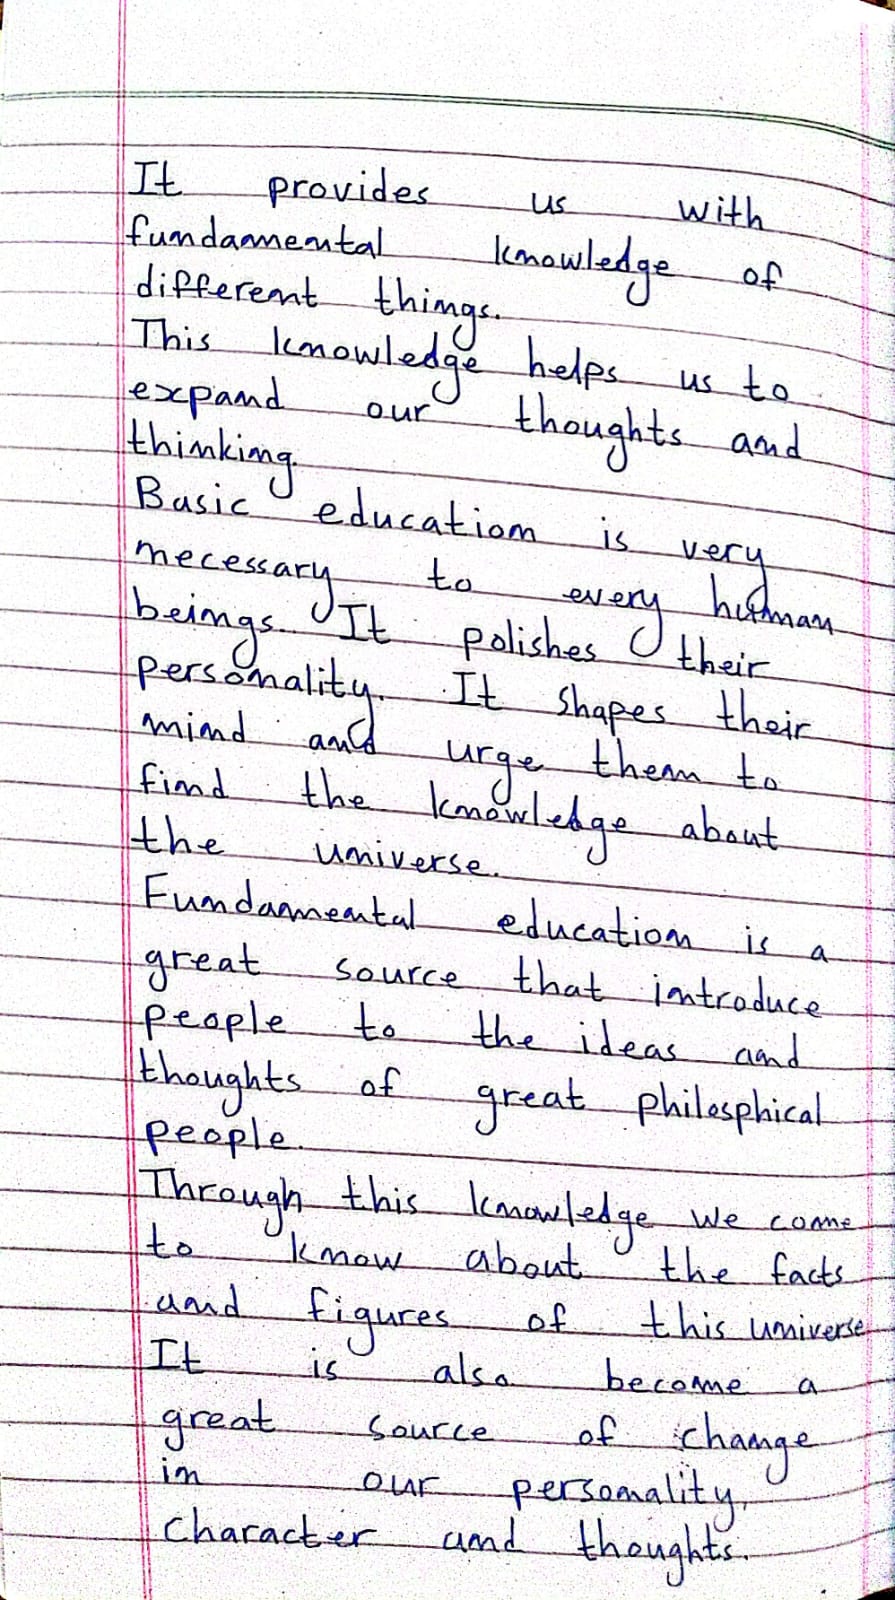 It provides us with
fundamental knowledge of
different things.
This knowledge helps us to
expand our thoughts and
thinking.
Basic education is very
necessary to every human
beings. It polishes their
personality. It shapes their
mind and urge them to
find the knowledge about
the universe.
Fundamental education is a
great source that introduce
people to the ideas and
thoughts of great philosphical
people.
Through this knowledge we come
to know about the facts
and figures of this universe
It is also become a
great source of change
in our personality,
character and thoughts.